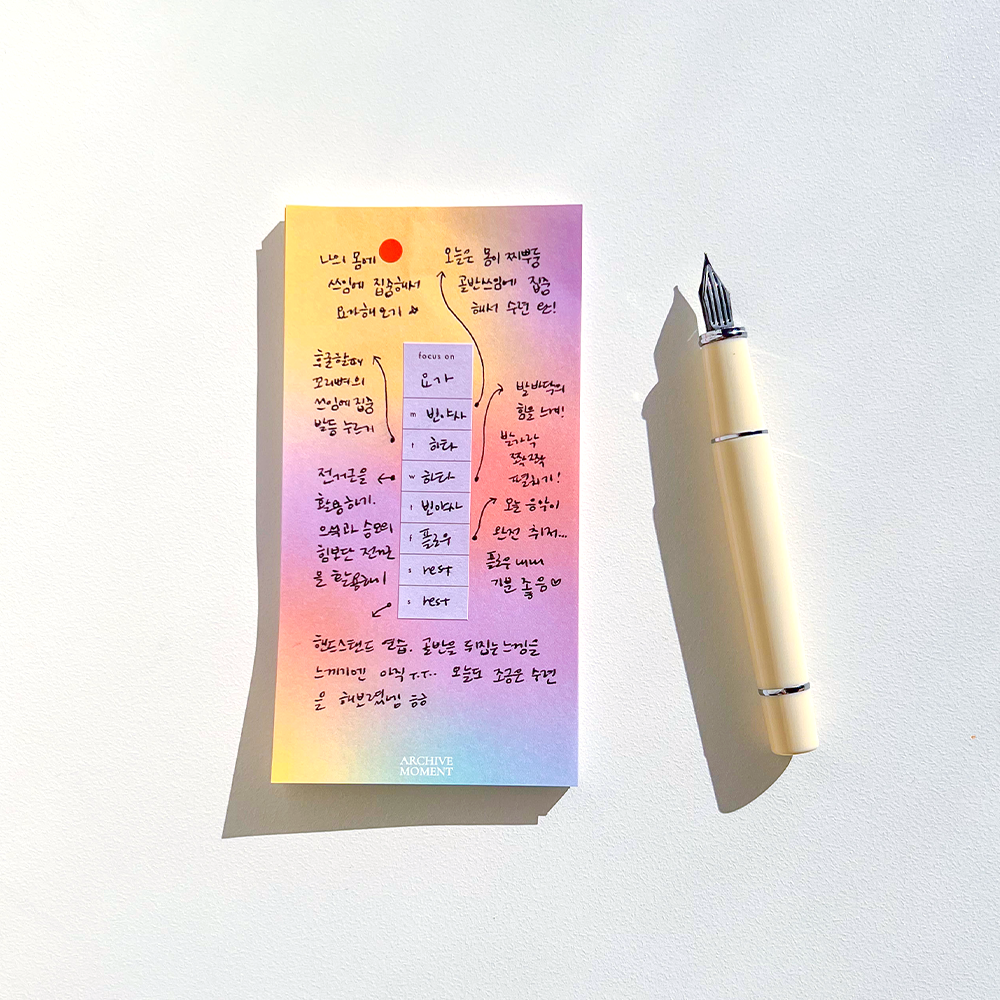 나의 몸에
쓰임에 집중해서
요가해오기
오늘은 몸이 찌뿌둥
골반쓰임에 집중
해서 수련 완!
후굴할때
꼬리뼈의
쓰임에 집중
발등 누르기
focus on
요가
m 빈야사
t 하타
w 하타
t 빈야사
f 플로우
s rest
s rest
발바닥의
힘을 느껴!
발가락
쫙쫙
펼치기!
전거근을
활용하기.
으쓱과 승모의
힘보단 전거근
을 활용하기
오늘 음악이
완전 취저...
플로우 내내
기분 좋음♡
핸드스탠드 연습. 골반을 뒤집는 느낌을
느끼기엔 아직 ㅜ.ㅜ.. 오늘도 조금은 수련
을 해보렸님
ARCHIVE
MOMENT